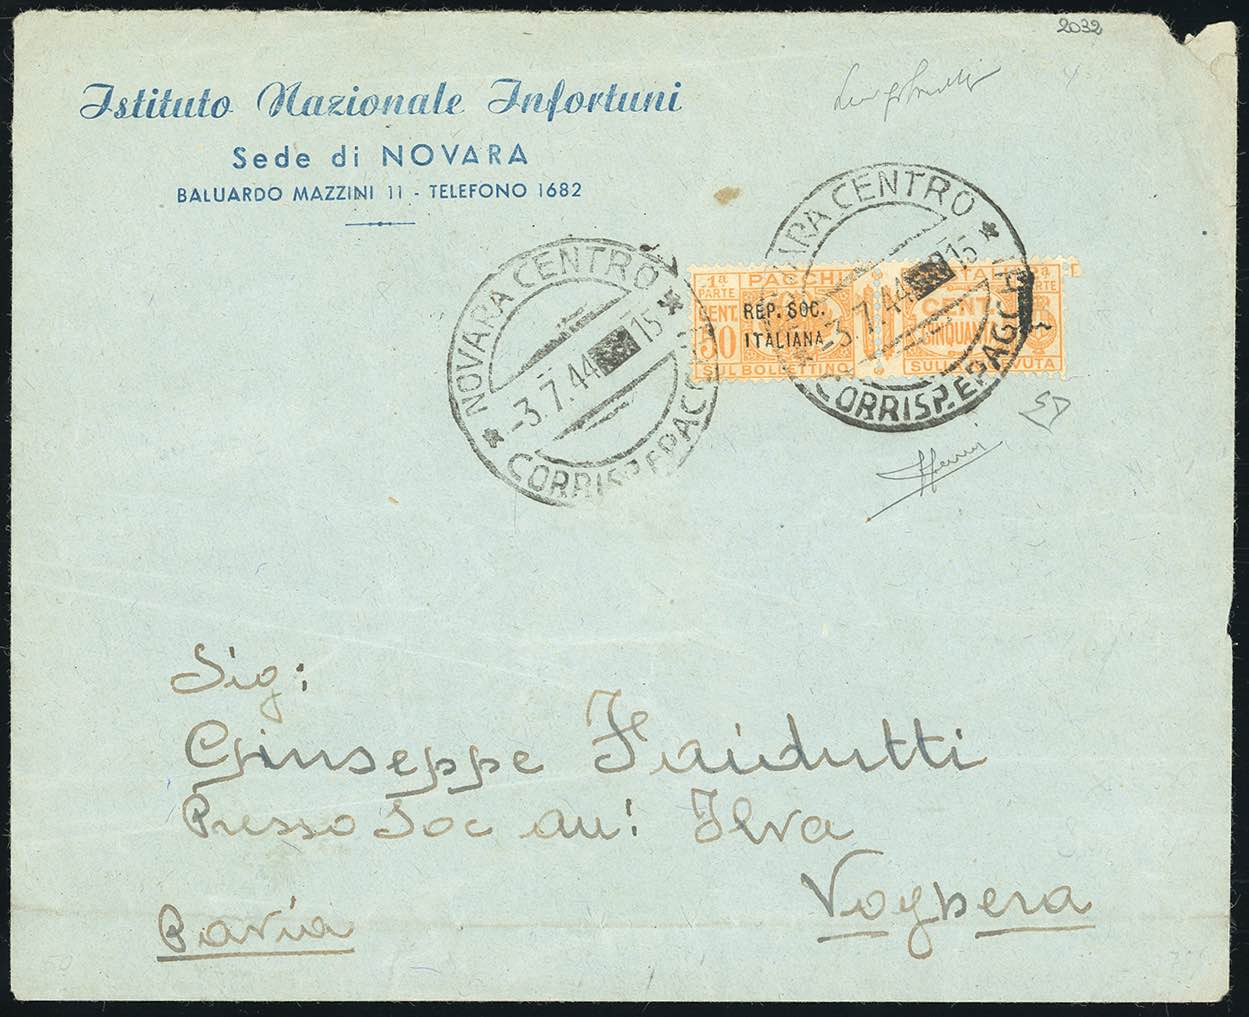 2032
Istituto Nazionale Infortuni
Sede di NOVARA
BALUARDO MAZZINI 11 - TELEFONO 1682
NOVARA CENTRO
-3.7.44 15
CORRISP. E PACC
1ª PARTE PACCHI
CENT. 50
REP. SOC.
ITALIANA
SUL BOLLETTINO
ITALIA 2ª PARTE
CENT
CINQUANTA
SULLA RICEVUTA
NOVARA CENTRO
-3.7.44 15
CORRISP. E PACCHI
Sig:
Giuseppe Faidutti
Presso Soc an: Ilva
Voghera
Pavia